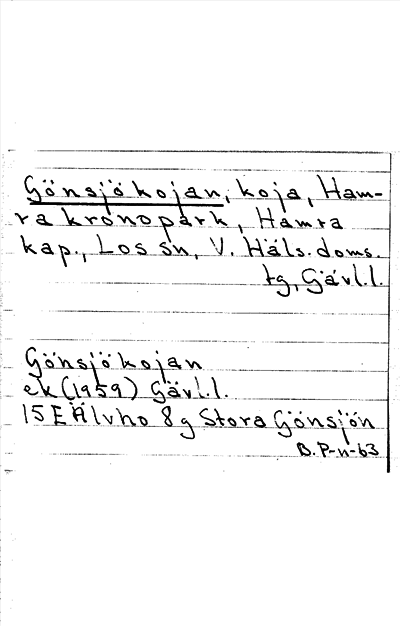 Gönsjökojan, koja, Ham-
ra kronopark, Hamra
kap., Los sn, V. Häls. doms.
tg, Gävl.l.
Gönsjökojan
ek (1959) Gävl.l.
15E Älvho 8g Stora Gönsjön
B. P-n-63